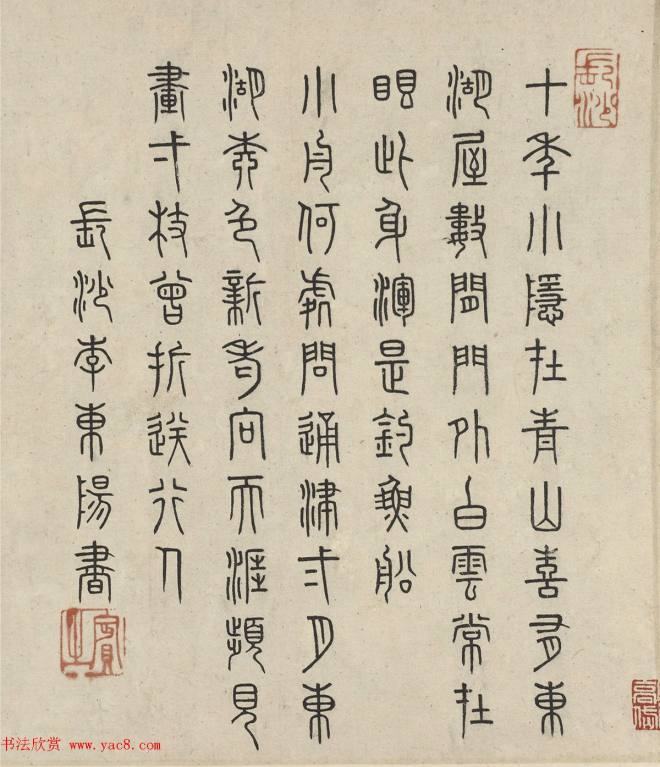 長沙
十年小隱在青山喜有東
湖屋數間門外白雲常在
眼此身渾是釣魚船
小舟何處問通津二月東
湖色新向天涯頻見
畫一枝曾折送行人
長沙李東陽書
賓之
书法欣赏 www.yac8.com